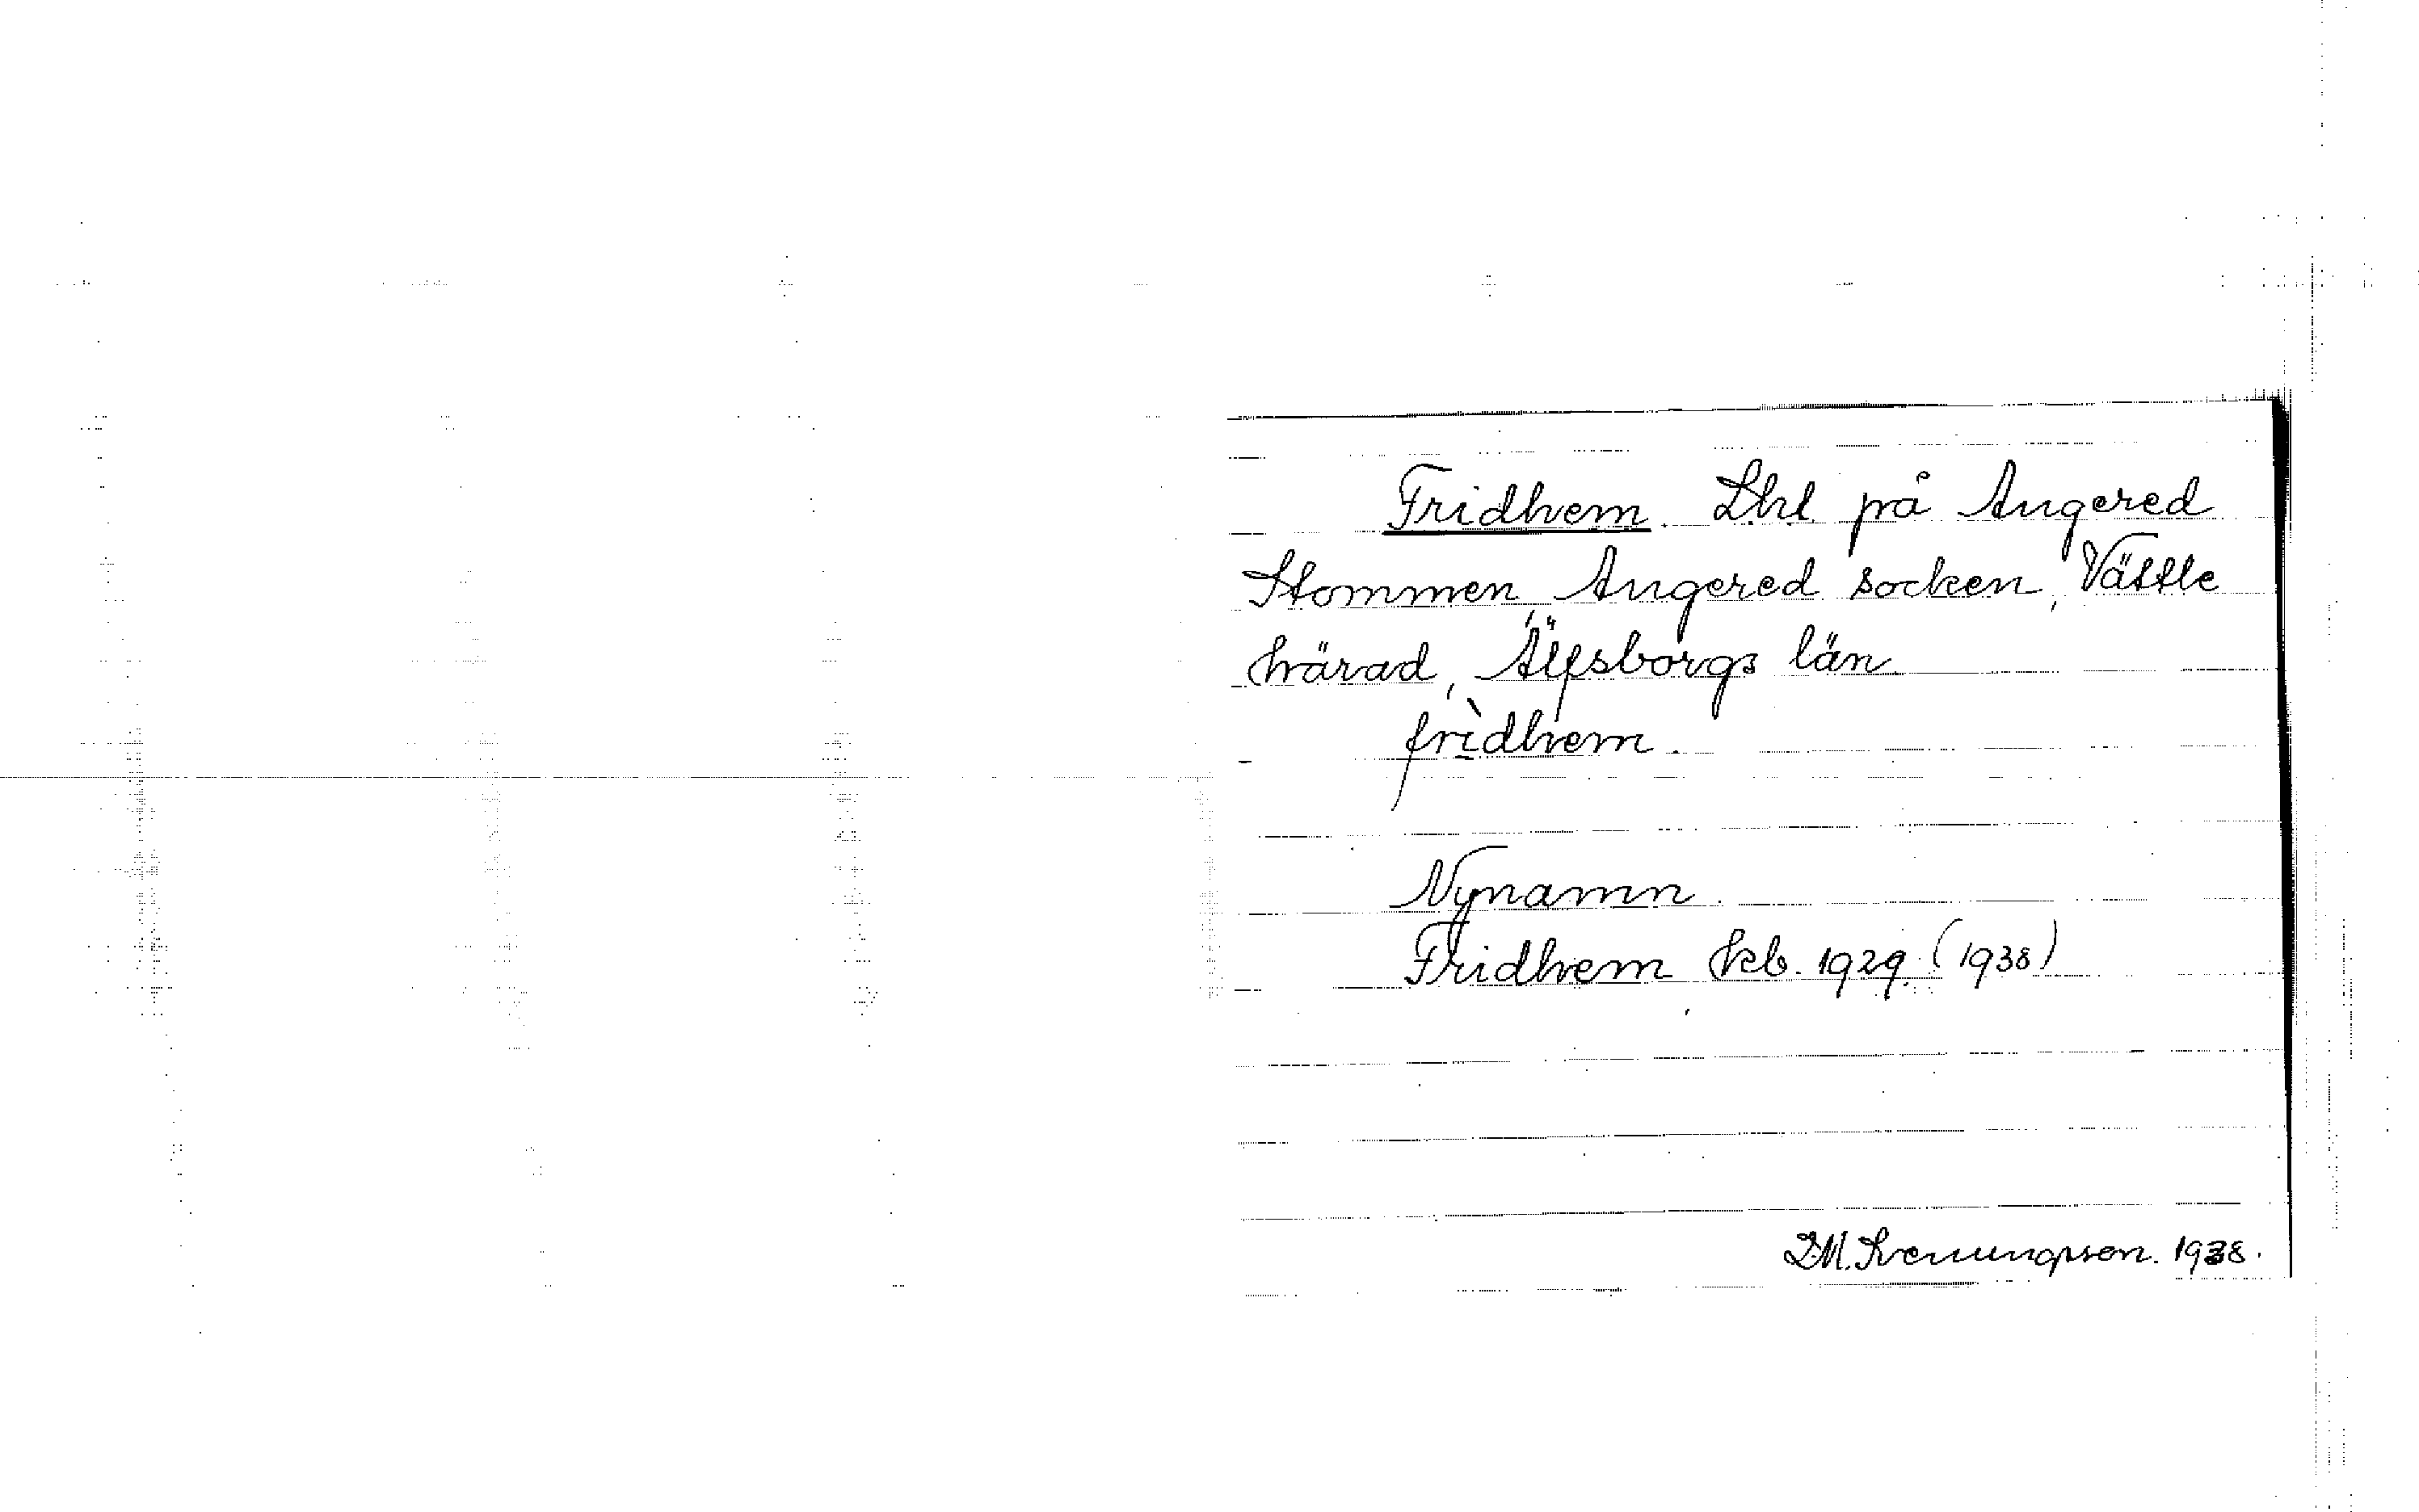 Fridhem. Lht på Angered
Stommen, Angered socken, Vättle
härad, Älfsborgs län.
fri̇̀dhem.
Nynamn.
Fridhem kb. 1929. (1938)
D.M. Svenungsson. 1938.